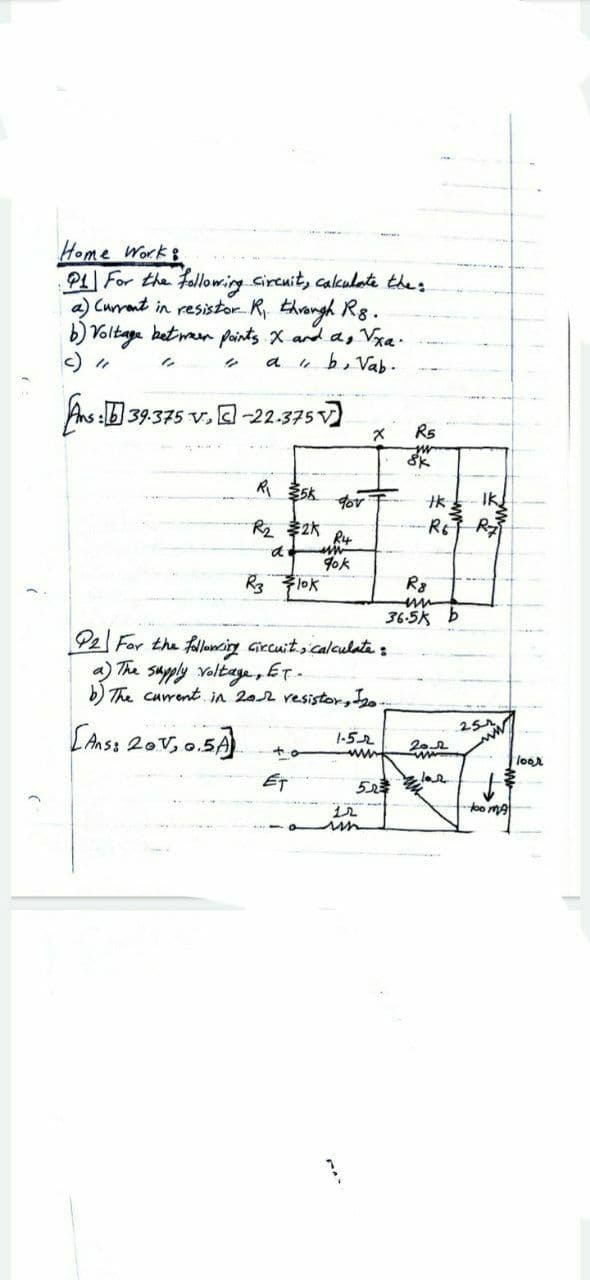 Home Work:
Q1] For the following circuit, calculate the:
a) Current in resistor R1 through R8.
b) Voltage between points X and a, Vxa.
c) 〃 〃 〃 a 〃 b, Vab.
[Ans: [b] 39.375 V, [c] -22.375 V]
X R5
8K
R1 5K 90V 1K 1K
R2 2K R4 R6 R7
a 90K
R3 10K R8
36.5K b
Q2] For the following circuit, calculate:
a) The supply voltage, ET.
b) The current in 20Ω resistor, I20.
[Ans: 20V, 0.5A]
+ 1.5Ω 20Ω 25Ω
100Ω
ET 5Ω 10Ω
100 mA
1Ω
-